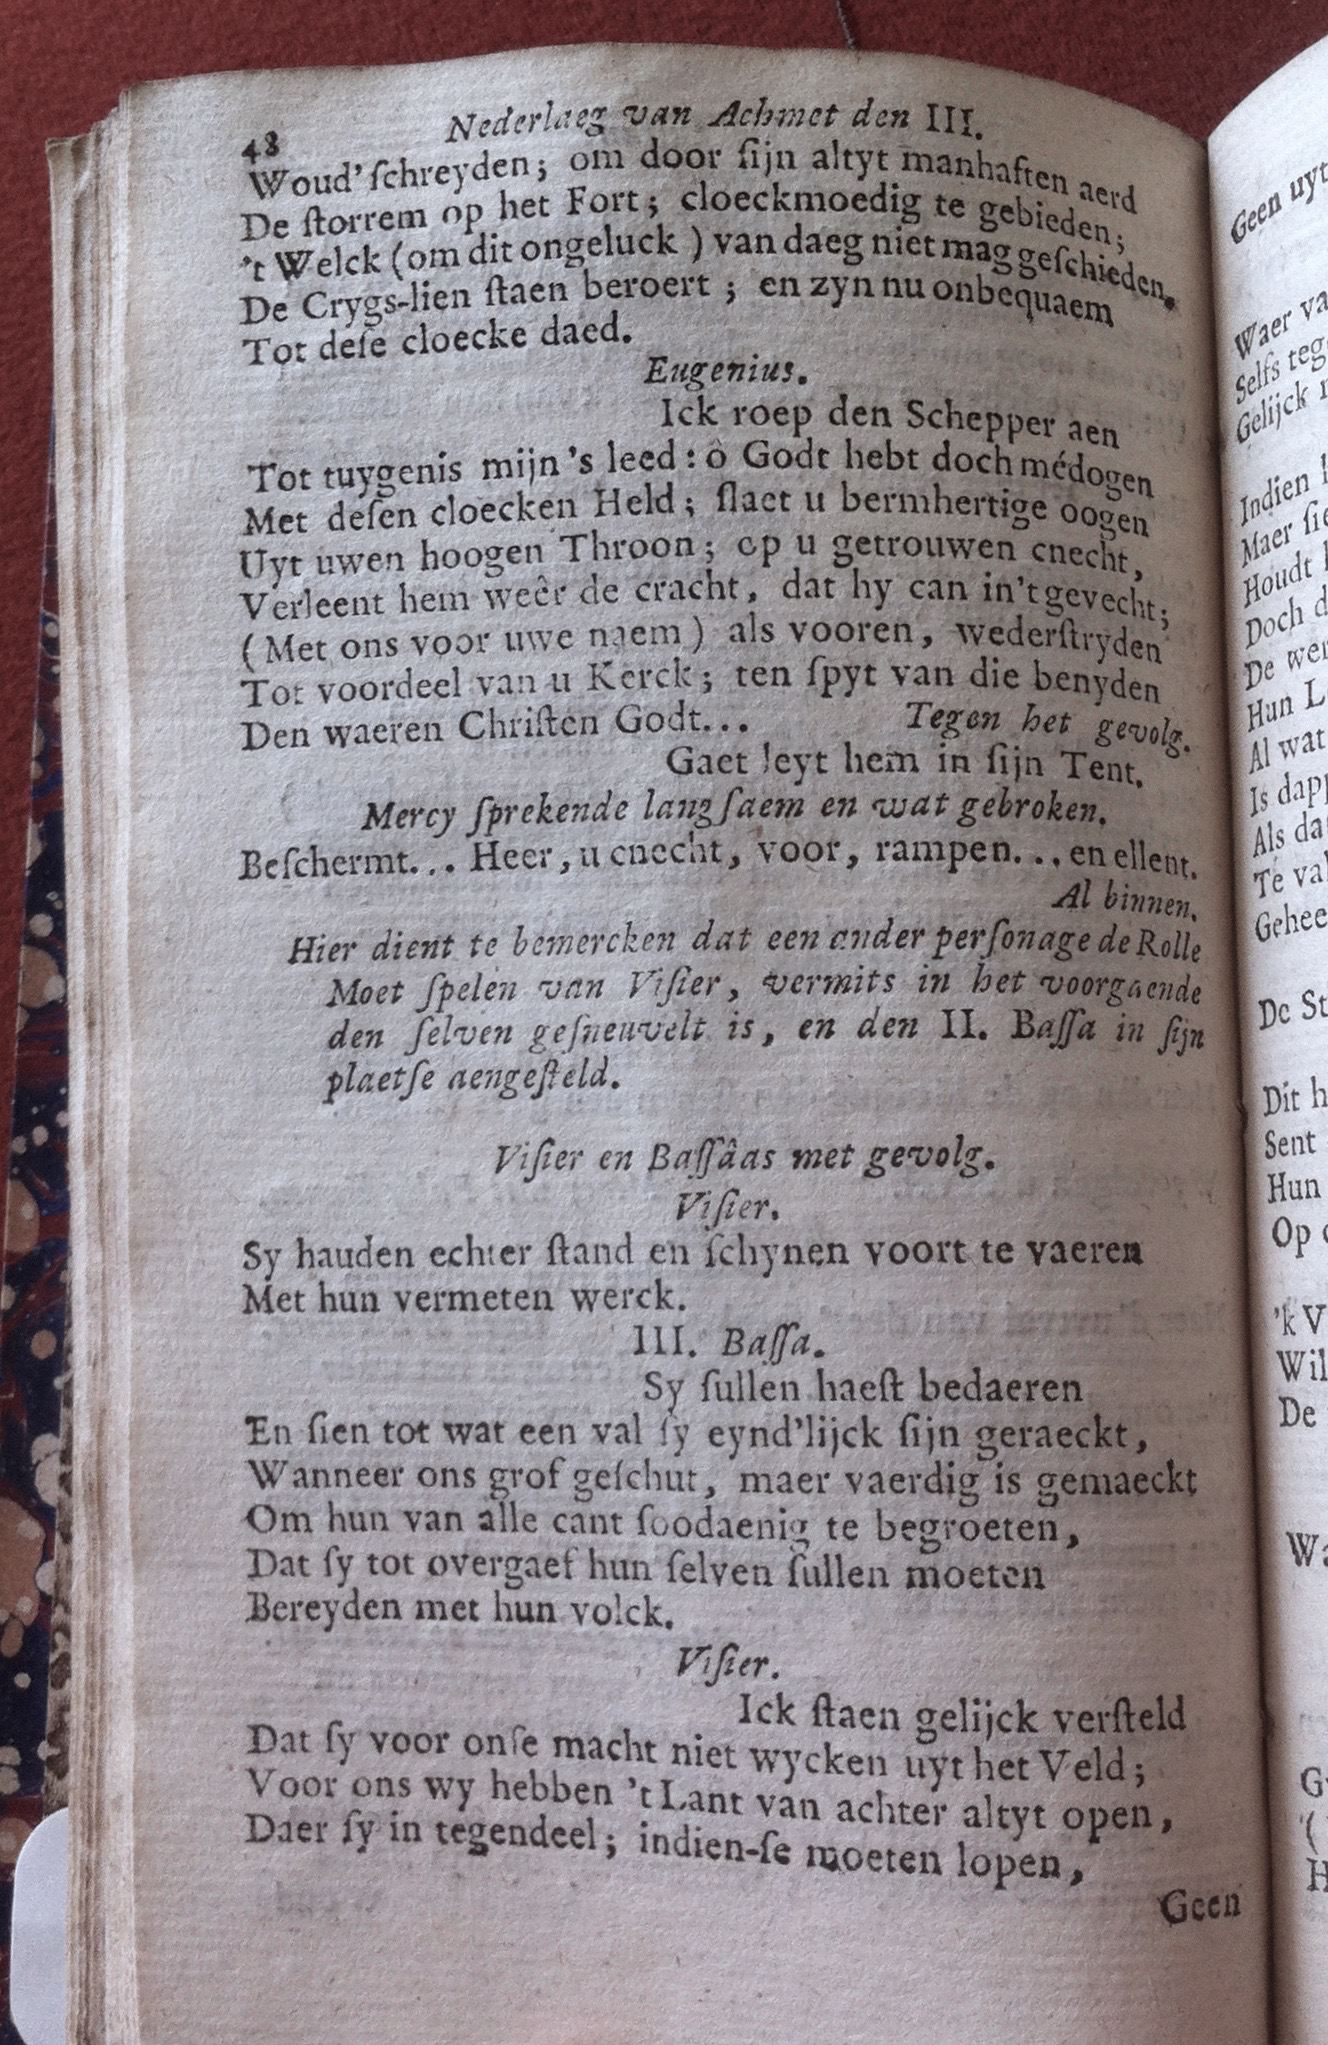 48 Nederlaeg van Achmet den III.
Woud'ſchreyden; om door ſijn altyt manhaften aerd
De ſtorrem op het Fort; cloeckmoedig te gebieden;
't Welck (om dit ongeluck) van daeg niet mag geſchieden.
De Crygs-lien ſtaen beroert; en zyn nu onbequaem
Tot deſe cloecke daed.
Eugenius.
Ick roep den Schepper aen
Tot tuygenis mijn's leed: ô Godt hebt doch médogen
Met deſen cloecken Held; ſlaet u bermhertige oogen
Uyt uwen hoogen Throon; op u getrouwen cnecht,
Verleent hem weêr de cracht, dat hy can in't gevecht;
(Met ons voor uwe naem) als vooren, wederſtryden
Tot voordeel van u Kerck; ten ſpyt van die benyden
Den waeren Chriſten Godt... Tegen het gevolg.
Gaet leyt hem in ſijn Tent.
Mercy ſprekende langſaem en wat gebroken.
Beſchermt... Heer, u cnecht, voor, rampen... en ellent.
Al binnen.
Hier dient te bemercken dat een ander perſonage de Rolle
Moet ſpelen van Viſier, vermits in het voorgaende
den ſelven geſneuvelt is, en den II. Baſſa in ſijn
plaetſe aengeſteld.
Viſier en Baſſâas met gevolg.
Viſier.
Sy hauden echter ſtand en ſchynen voort te vaeren
Met hun vermeten werck.
III. Baſſa.
Sy ſullen haeſt bedaeren
En ſien tot wat een val ſy eynd'lijck ſijn geraeckt,
Wanneer ons grof geſchut, maer vaerdig is gemaeckt
Om hun van alle cant ſoodaenig te begroeten,
Dat ſy tot overgaef hun ſelven ſullen moeten
Bereyden met hun volck.
Viſier.
Ick ſtaen gelijck verſteld
Dat ſy voor onſe macht niet wycken uyt het Veld;
Voor ons wy hebben 't Lant van achter altyt open,
Daer ſy in tegendeel; indien-ſe moeten lopen,
Geen
Geen uyt
Waer va
Selfs teg
Gelijck
Indien
Maer ſie
Houdt
Doch d
De wer
Hun L
Al wat
Is dapp
Als da
Té val
Gehee
De St
Dit h
Sent
Hun
Op
'k V
Wil
De